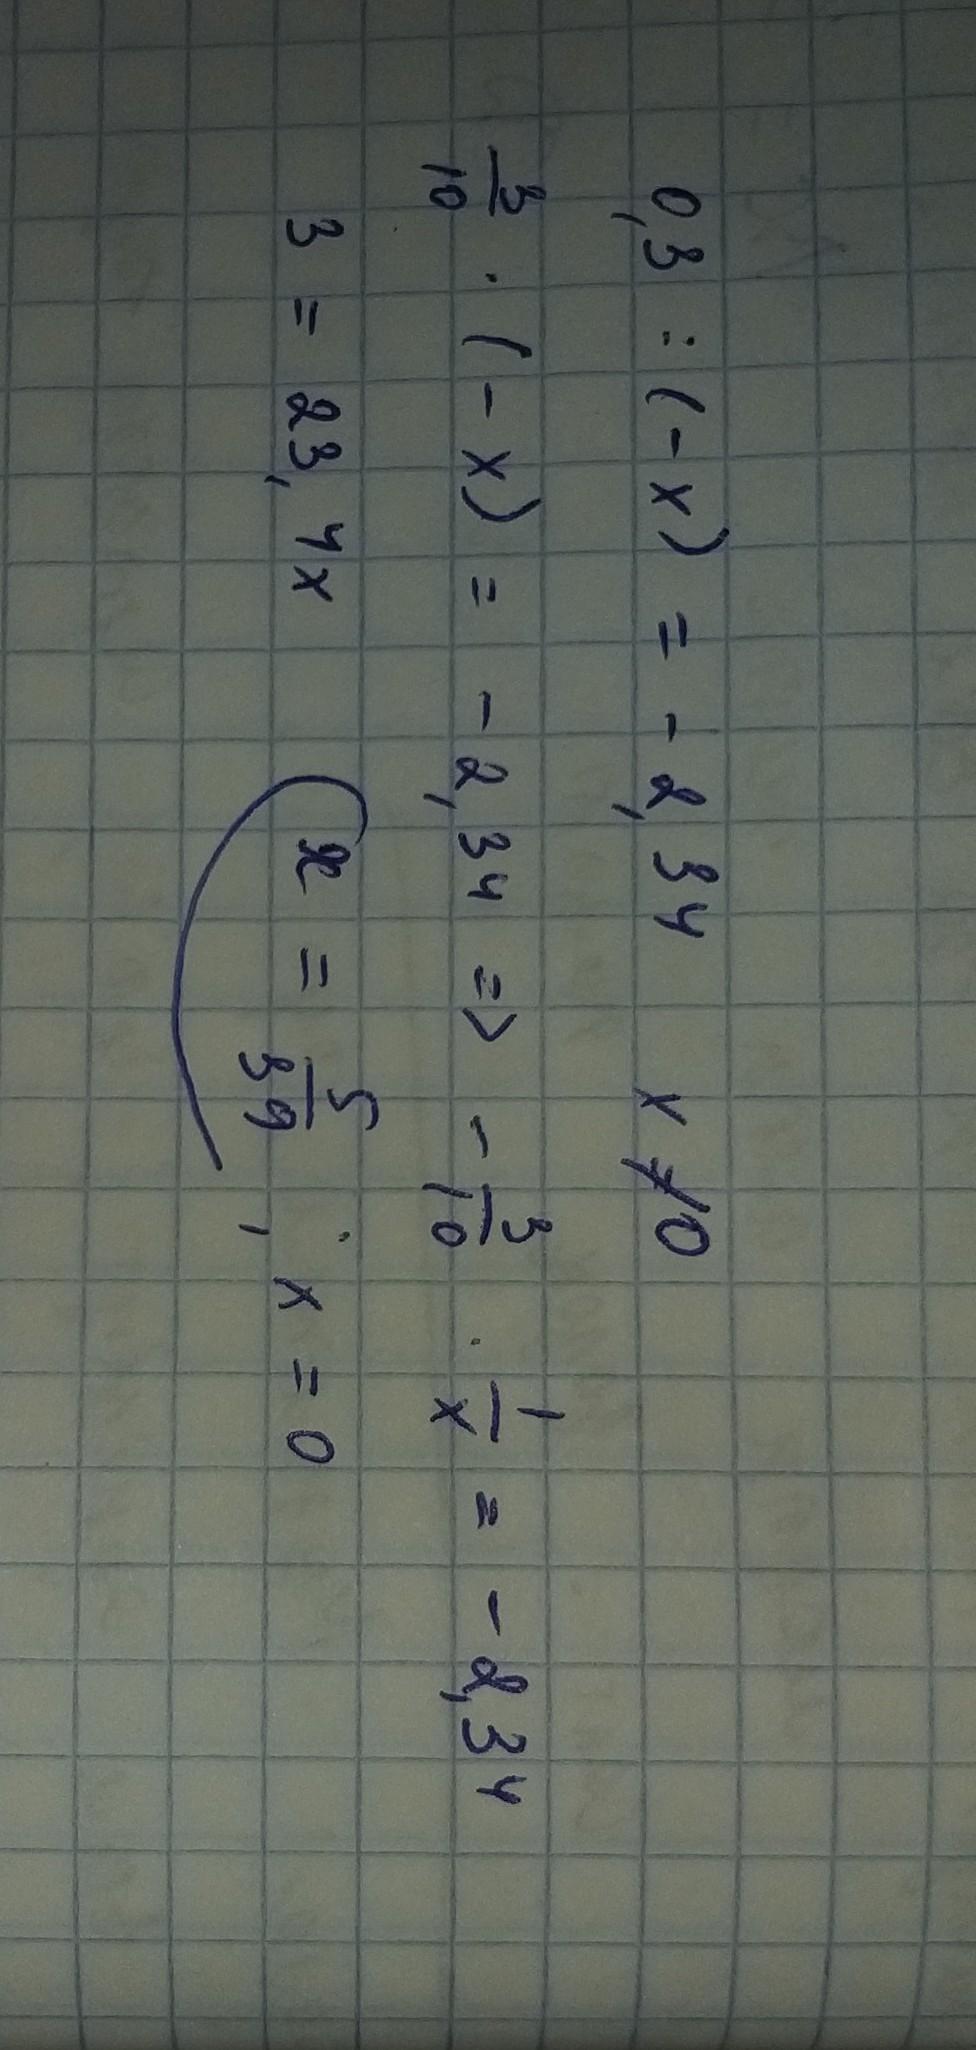 0,3 : (-x) = -2,34 x ≠ 0
3/10 · (-x) = -2,34 => -3/10 · 1/x = -2,34
3 = 23,4x x = 5/39, x = 0